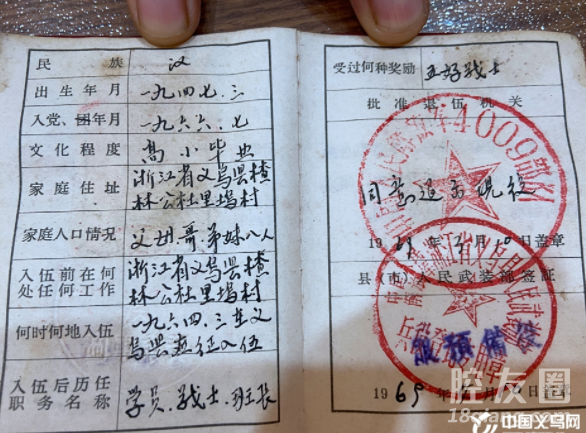 民族 汉
出生年月 一九四七.三
入党、团年月 一九六六.七
文化程度 高小毕业
家庭住址 浙江省义乌县楂
林公社里塢村
家庭人口情况 父母哥弟妹八人
入伍前在何
处任何工作
浙江省义乌县楂
林公社里塢村
何时何地入伍
一九六四.三在义
乌县应征入伍
入伍后历任
职务名称
学员.战士.班长
受过何种奖励 五好战士
批准退伍机关
4009部队
同意退出现役
盖章
县(市)人民武装部签证
服预备役
1969年
日盖章
腔友圈
中国义乌网